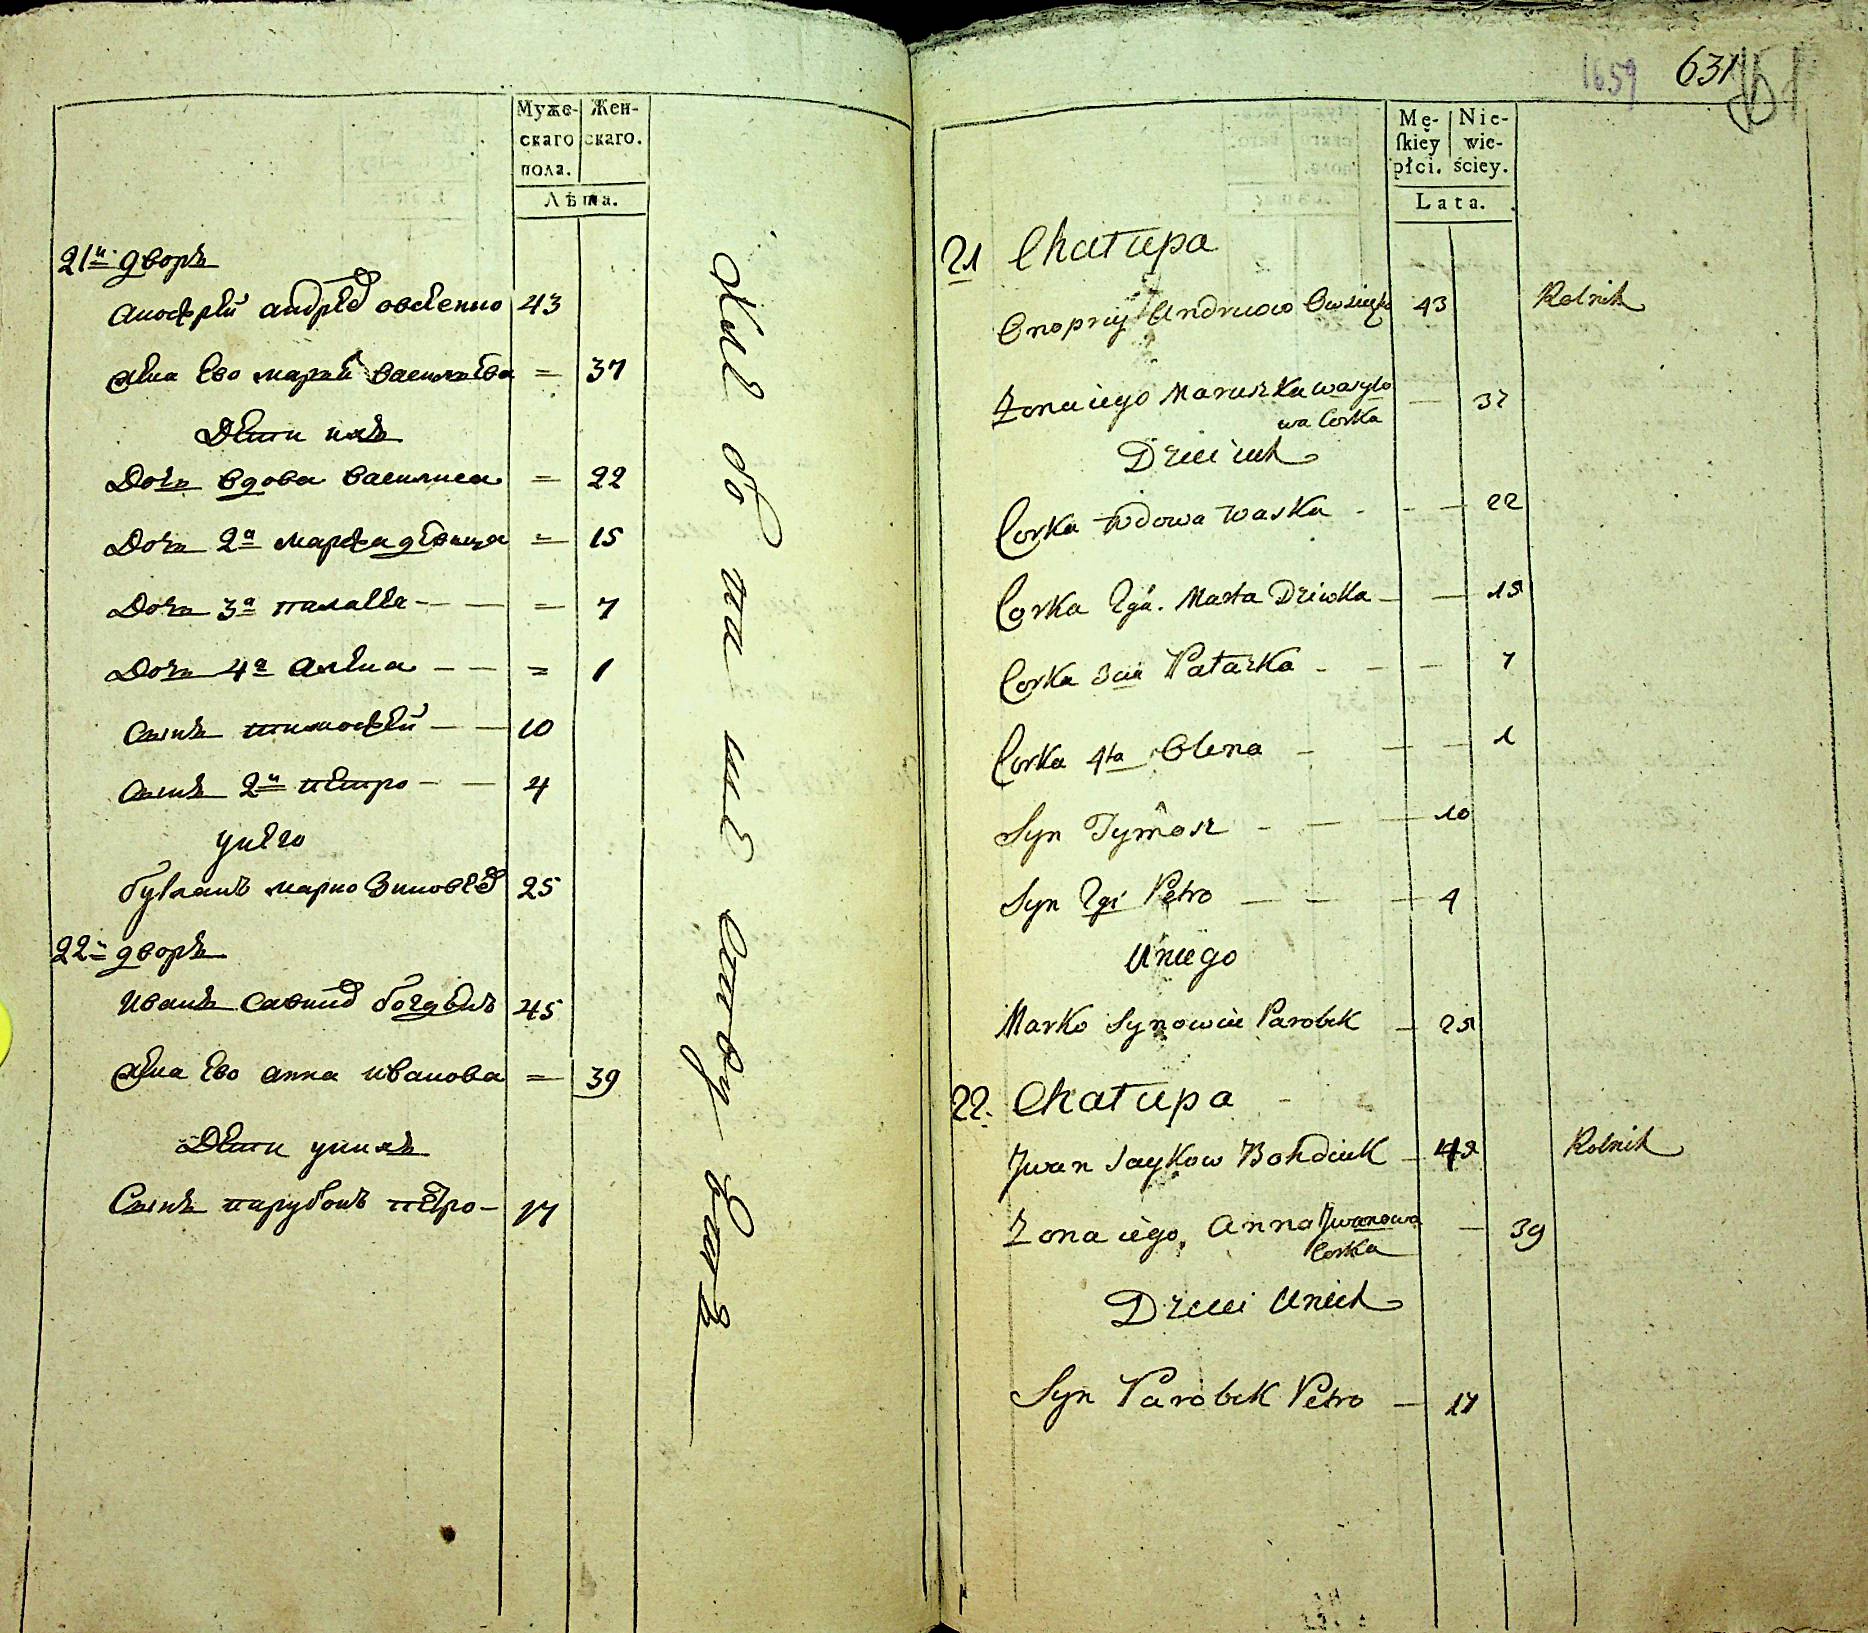 Муже- Жен-
скаго скаго.
пола.
Лѣта.
21й дворъ
Анофрѣй андрѣев овсѣенко 43
жена ево марья василѣва = 37
Дѣти ихъ
Дочь вдова василиса = 22
Дочь 2я марфа девица = 15
Дочь 3я палаѣя - - = 7
Дочь 4я алѣна - - = 1
Сынъ тимофѣй - - 10
Сынъ 2й пѣтро - - 4
у него
марко Зиновѣев 25
22й дворъ
Иванъ 45
жена ево анна иванова = 39
Дѣти у нихъ
Сынъ парубокъ пѣтро - 17
1659 631
Mę- Nie-
ſkiey wie-
płci. ściey.
Lata.
21 Chałupa
Onopry Andruow Owsieyko 43 Rolnik
Zona iego Maruszka wasylo - 37
wa Corka
Dzieci ich
Corka wdowa waska - - - 22
Corka 2ga. Marta Dziwka - - 15
Corka 3cia Pałazka - - - 7
Corka 4ta Olena - - - 1
Syn Tymosz - - - 10
Syn 2gi Petro - - - 4
U niego
Marko Synowiec Parobek - 25
22. Chałupa
Jwan Saykow Bohdiuk - Rolnik
Zona iego, Anna Jwanowa - 39
Corka
Dzieci U nich
Syn Parobek Petro - 17